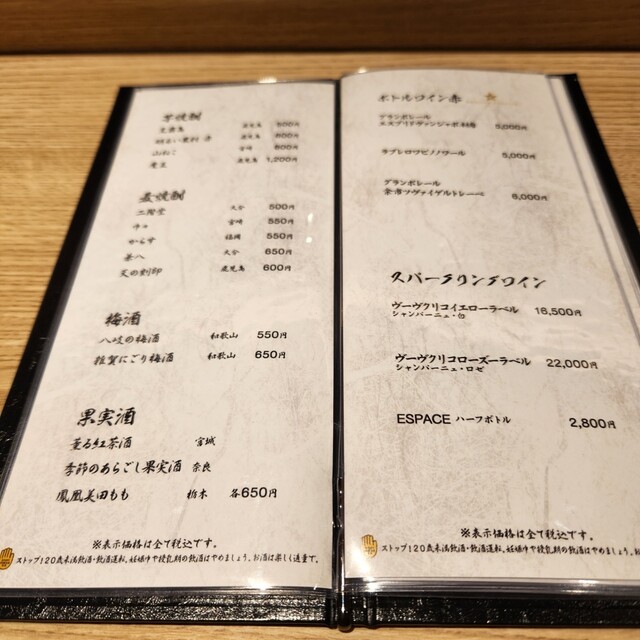 芋焼酎
鹿児島 500円
明るい農村 赤 鹿児島 600円
山ねこ 宮崎 600円
魔王 鹿児島 1,200円
麦焼酎
二階堂 大分 500円
中々 宮崎 550円
からす 福岡 550円
兼八 大分 650円
天の刻印 鹿児島 600円
梅酒
八岐の梅酒 和歌山 550円
雑賀にごり梅酒 和歌山 650円
果実酒
薫る紅茶酒 宮城
季節のあらごし果実酒 奈良
鳳凰美田もも 栃木 各650円
※表示価格は全て税込です。
ストップ!20歳未満飲酒・飲酒運転。妊娠中や授乳期の飲酒はやめましょう。お酒は楽しく適量で。
ボトルワイン赤
グランポレール
エスプリドヴァンジャポネ 5,000円
タブレロワピノノワール 5,000円
グランポレール
余市ツヴァイゲルトレーベ 6,000円
スパークリングワイン
ヴーヴクリコイエローラベル 16,500円
シャンパーニュ・白
ヴーヴクリコローズラベル 22,000円
シャンパーニュ・ロゼ
ESPACE ハーフボトル 2,800円
※表示価格は全て税込です。
ストップ!20歳未満飲酒・飲酒運転。妊娠中や授乳期の飲酒はやめましょう。お